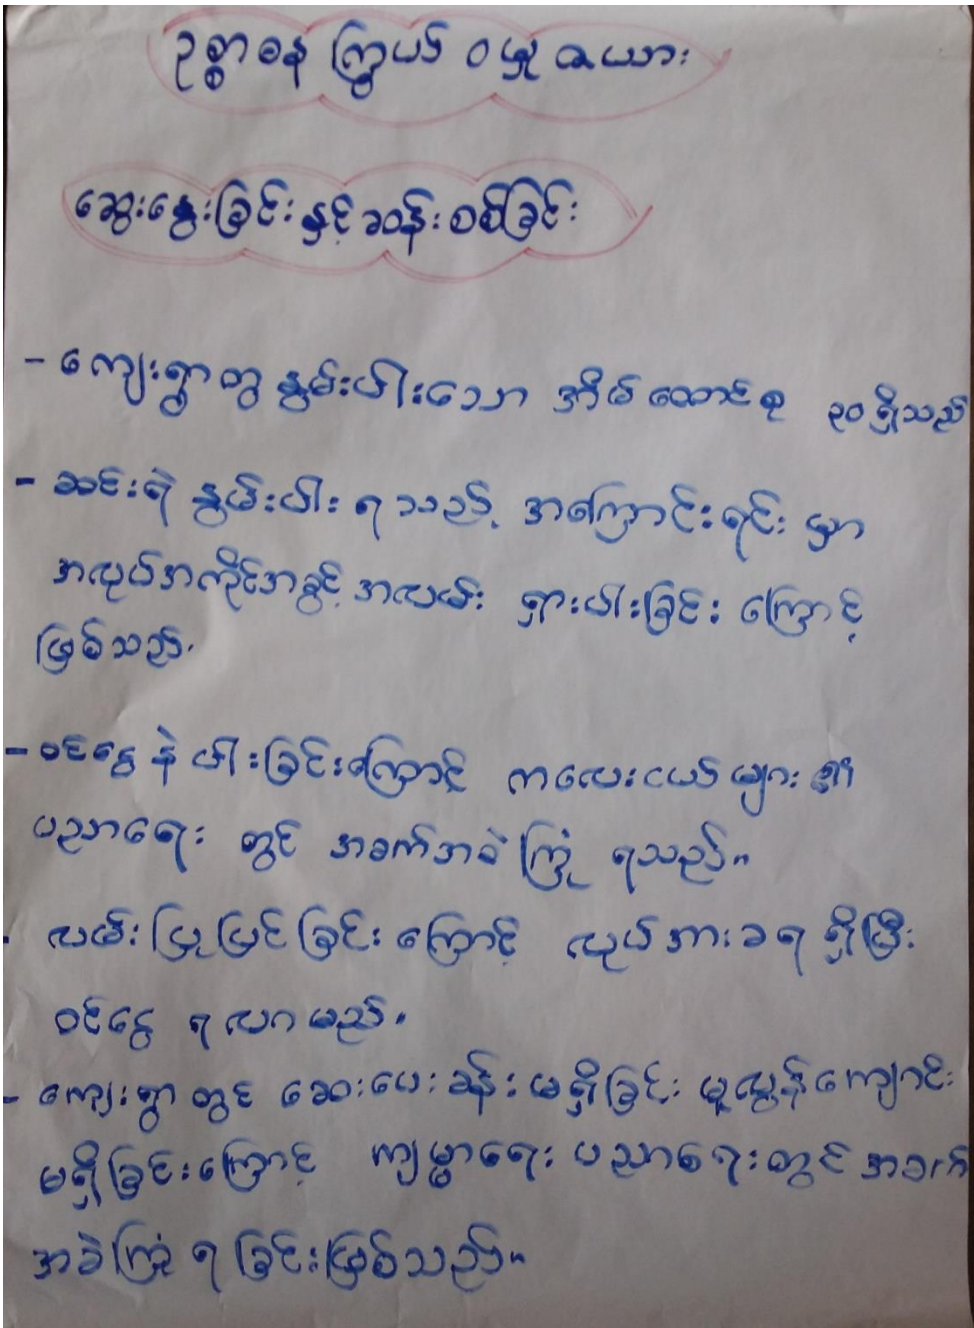 ဥစ္စာဓန ကြွယ်ဝမှု ဇယား
ဆွေးနွေးခြင်း နှင့် ဆန်းစစ်ခြင်း
- ကျေးရွာတွ နွမ်းပါးသော အိမ်ထောင်စု ၃၀ ရှိသည်
- ဆင်းရဲ နွမ်းပါး ရသည့် အကြောင်းရင်း မှာ
အလုပ်အကိုင်အခွင့် အလမ်း ရှားပါးခြင်း ကြောင့်
ဖြစ်သည်။
- ဝင်ငွေ နဲပါးခြင်းကြောင့် ကလေးငယ်များ ၏
ပညာရေး တွင် အခက်အခဲ ကြုံ ရသည်။
- လမ်း ပြုပြင်ခြင်း ကြောင့် လုပ်အားခရ ရှိပြီး
ဝင်ငွေ ရလာမည်။
- ကျေးရွာတွင် ဆေးပေးခန်း မရှိခြင်း မူလွန်ကျောင်း
မရှိခြင်းကြောင့် ကျမ္မာရေး ပညာရေးတွင် အခက်
အခဲကြုံ ရခြင်းဖြစ်သည်။